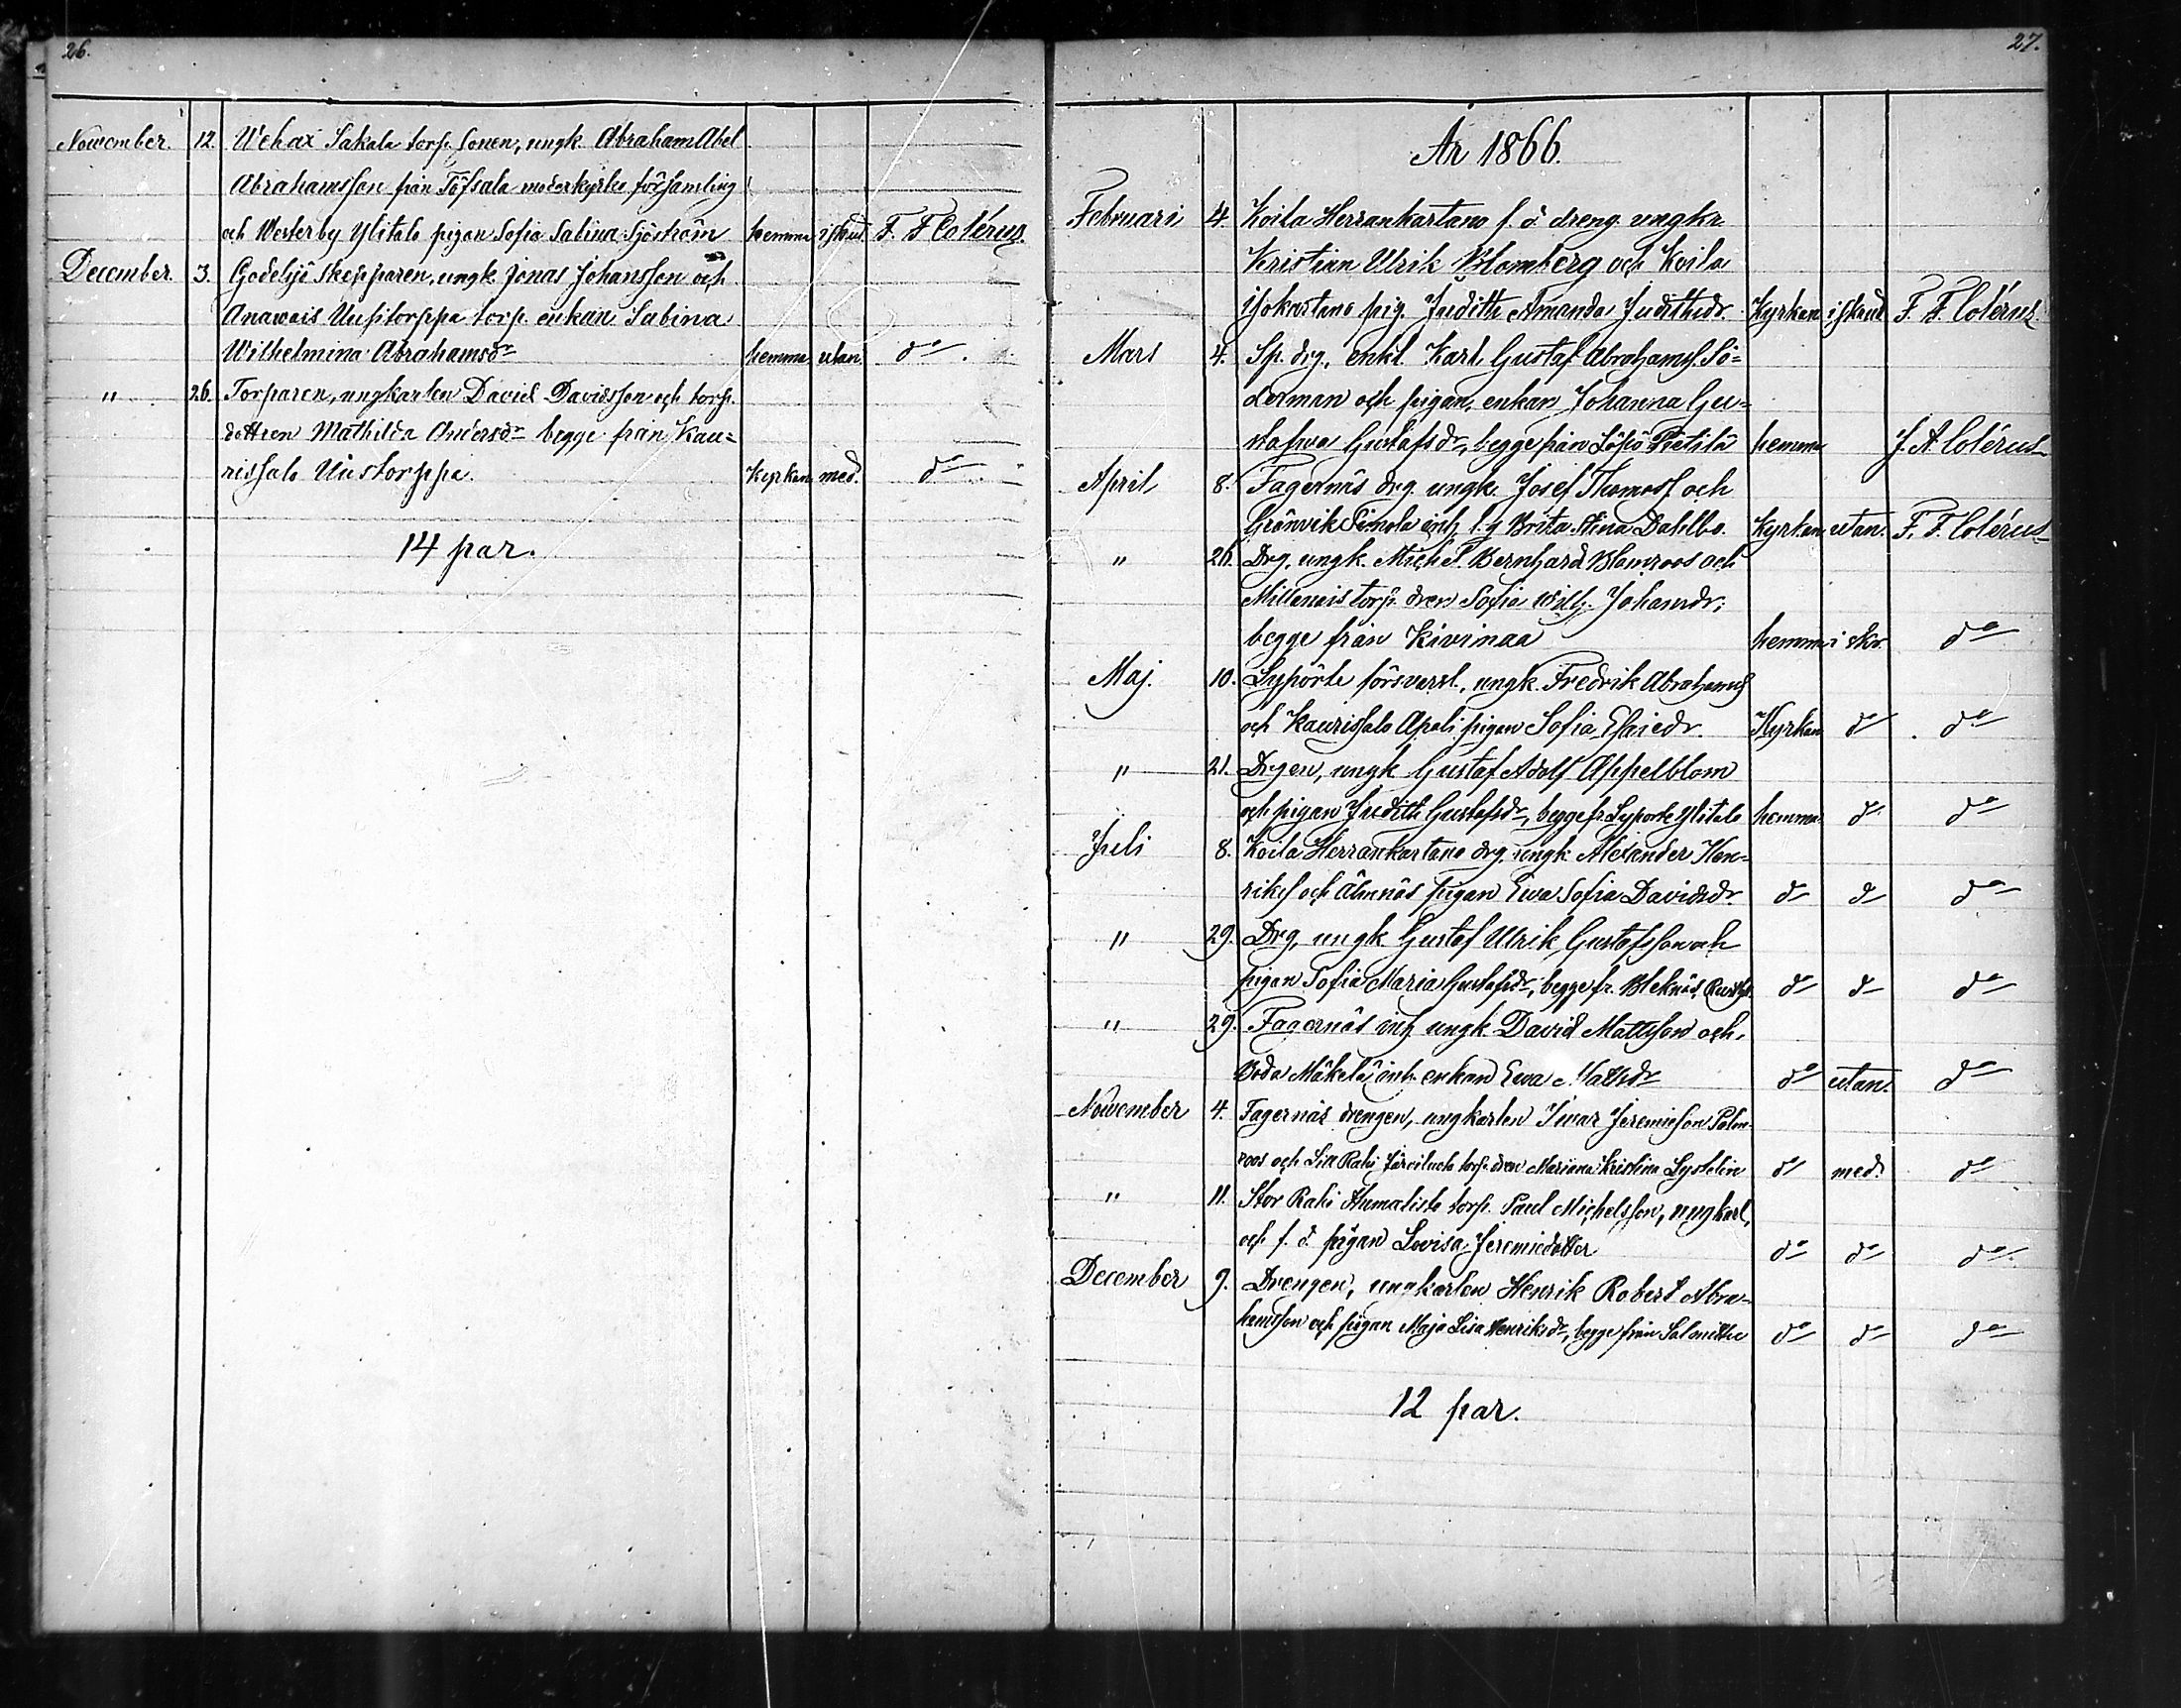 26.
November. 12. Wehax Sakala torp. sonen, ungk. Abraham Abel
Abrahamsson från Töfsala moderkyrko församling
och Westerby Ylitalo pigan Sofia Sabina Sjöström hemma i skrud F. F. Colérus.
December 3. Godelsjö skepparen, ungk. Jonas Johansson och
Anawais Uusitorppa torp. enkan Sabina
Wilhelmina Abrahamsdr hemma utan do.
" 26. Torparen, ungkarlen David Davidsson och torp.
dottren Mathilda Andersdr begge från Kau=
rissalo Uustorppa. Kyrkan med. do
14 par.
27.
År 1866.
Februari 4. Koila Herrankartano f. d. dreng ungkr
Kristian Ulrik Blomberg och Koila
Isokartano pig. Judith Amanda Judithsdr. Kyrkan i skrud F. F. Colérus
Mars 4. Sp. drg. enkl. Karl Gustaf Abrahamss. Sö=
derman och pigan, enkan Johanna Gu=
stafva Gustafsdr, begge från Löpö Pietilä hemma J. A. Colérus
April 8. Fagernäs drg. ungk. Josef Thomass. och
Grönvik Simola inh. Brita Stina Dahlbo. Kyrkan utan. F. F. Colérus
" 26. Drg, ungk. Mich. Bernhard Blomroos och
torp. dren Sofia Wilh. Johansdr,
begge från Kivimaa hemma i skr. do
Maj. 10. Lypörte försvarsl., ungk. Fredrik Abrahamss
och Kaurissalo Apali pigan Sofia Esaiedr. Kyrkan do do
" 21. Drgen, ungk Gustaf Adolf Appelblom
och pigan Judith Gustafsdr, begge fr Lyporte Ylitalo hemma do do
Juli 8. Koila Herrankartano drg. ungk. Alexander Hen=
rikss och Älmnäs pigan Ewa Sofia Davidsdr. do do do
" 29. Drg, ungk Gustaf Ulrik Gustafsson och
pigan Sofia Maria Gustafsdr, begge fr. Bleknäs Rusth. do do do
" 29. Fagernäs inh ungk. David Mattsson och
Boda Mäkelä inh. enkan Ewa Mattsdr do utan. do
November 4. Fagernäs drengen, ungkarlen Iwar Jeremiesson Palm-
roos och Lill Rahi torp. dren Mariana Kristina Lystelin do med. do
" 11. Stor Rahi Humalisto torp. Paul Michelsson, ungkarl,
och f. d. pigan Lovisa Jeremiedotter do do do.
December 9. Drengen, ungkarlen Henrik Robert Abra-
hamsson och pigan Maja Lisa Henriksdr, begge från Salmittu do do do
12 par.